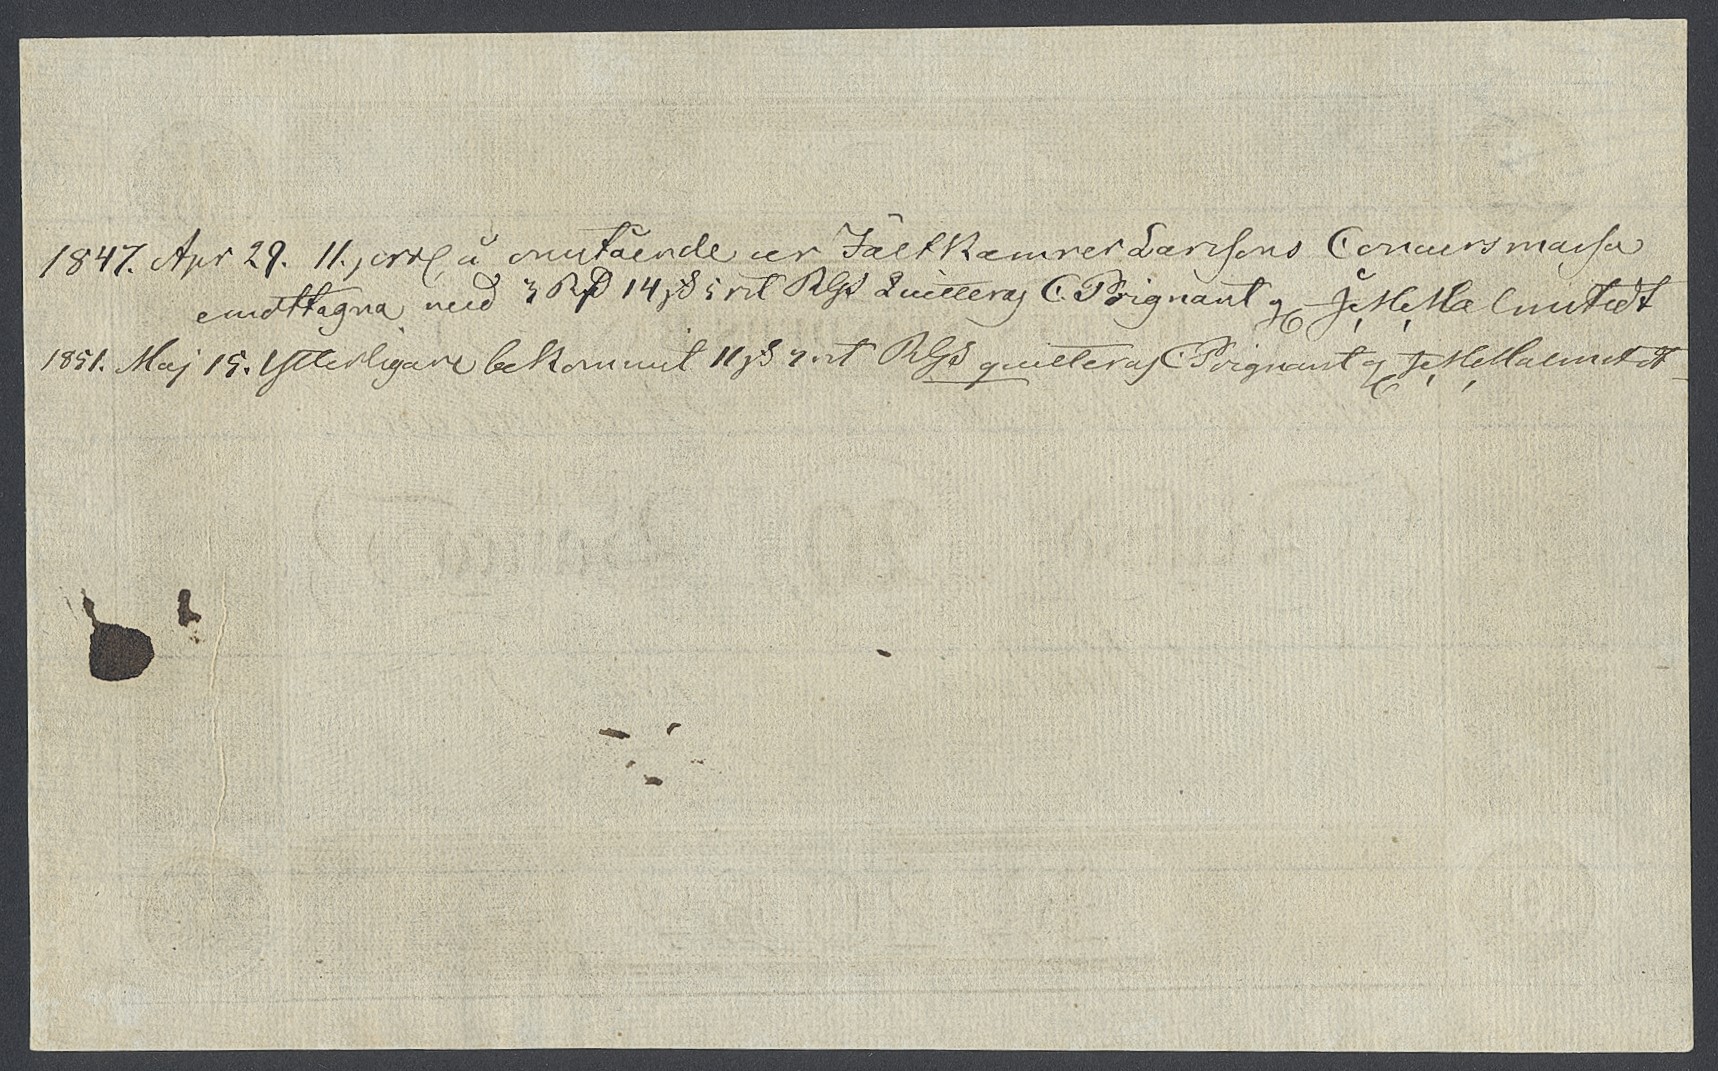 1847. Apr 29. 11. å omstående ur Fält Kamrer Larssons Concursmassa
emottagna med 3 Rd 14 s 5 rst RGs Quitteras C. Poignant g J. M. Malmstedt
1851. Maj 15. Ytterligare bekommit 11 s rst RGs quitteras C Poignant g J. M. Malmstedt